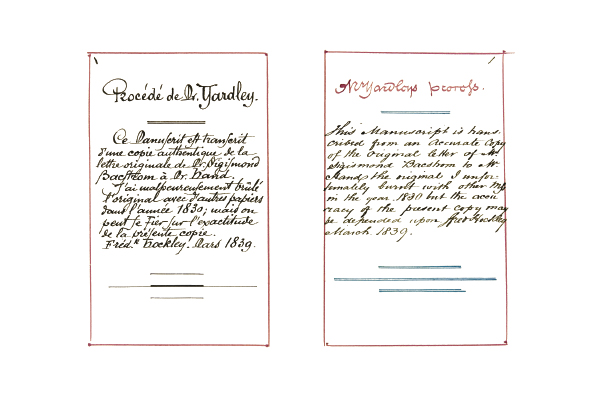 Procédé de Mr. Yardley.
Ce Manuscrit est transcrit
d'une copie authentique de la
lettre originale de Mr. Sigismond
Bacstrom à Mr. Hand.
J'ai malheureusement brûlé
l'original avec d'autres papiers
dans l'année 1830; mais on
peut se fier sur l'exactitude
de la présente copie.
Fréd.k Hockley. Mars 1839.
Mr Yardleys process.
This Manuscript is trans
cribed from an accurate Copy
of the Original letter of Mr
Sigismond Bacstrom to Mr
Hand, the original I unfor-
tunately burnt with other MSS
in the year 1830 but the accu
racy of the present copy may
be depended upon Fred Hockley
March. 1839.